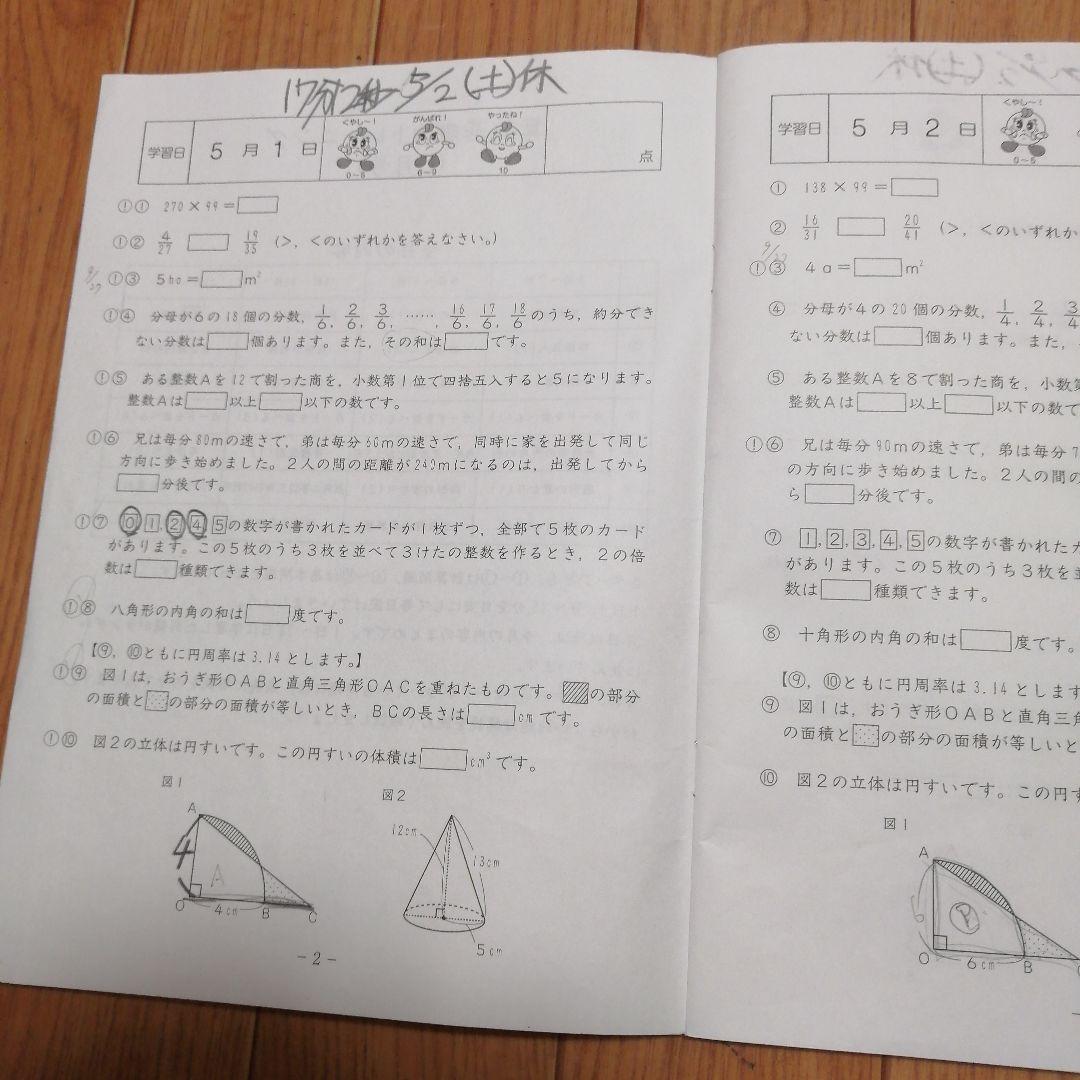 17分12秒 5/2(土)休
学習日 5月1日 くやし〜! 0〜5 がんばれ! 6〜9 やったね! 10 点
①① 270×99=
①② 4/27 19/35 (>,<のいずれかを答えなさい。)
9/27 ①③ 5ha=m²
①④ 分母が6の18個の分数,1/6,2/6,3/6,……,16/6,17/6,18/6のうち,約分でき
ない分数は個あります。また,その和はです。
①⑤ ある整数Aを12で割った商を,小数第1位で四捨五入すると5になります。
整数Aは以上以下の数です。
①⑥ 兄は毎分80mの速さで,弟は毎分60mの速さで,同時に家を出発して同じ
方向に歩き始めました。2人の間の距離が240mになるのは,出発してから
分後です。
①⑦ 0,1,2,4,5の数字が書かれたカードが1枚ずつ,全部で5枚のカード
があります。この5枚のうち3枚を並べて3けたの整数を作るとき,2の倍
数は種類できます。
①⑧ 八角形の内角の和は度です。
【⑨,⑩ともに円周率は3.14とします。】
①⑨ 図1は,おうぎ形OABと直角三角形OACを重ねたものです。の部分
の面積との部分の面積が等しいとき,BCの長さはcmです。
①⑩ 図2の立体は円すいです。この円すいの体積はcm³です。
図1
A
4
A
O 4cm B C
図2
12cm
13cm
5cm
-2-
(土)休
学習日 5月2日 くやし〜! 0〜5
① 138×99=
② 16/31 20/41 (>,<のいずれか
9/27
①③ 4a=m²
④ 分母が4の20個の分数,1/4,2/4,3/4
ない分数は個あります。また,
⑤ ある整数Aを8で割った商を,小数第
整数Aは以上以下の数で
①⑥ 兄は毎分90mの速さで,弟は毎分7
の方向に歩き始めました。2人の間の
ら分後です。
⑦ 1,2,3,4,5の数字が書かれたカ
があります。この5枚のうち3枚を並
数は種類できます。
⑧ 十角形の内角の和は度です。
【⑨,⑩ともに円周率は3.14とします
⑨ 図1は,おうぎ形OABと直角三角
の面積との部分の面積が等しいと
⑩ 図2の立体は円すいです。この円す
図1
A
6
O 6cm B